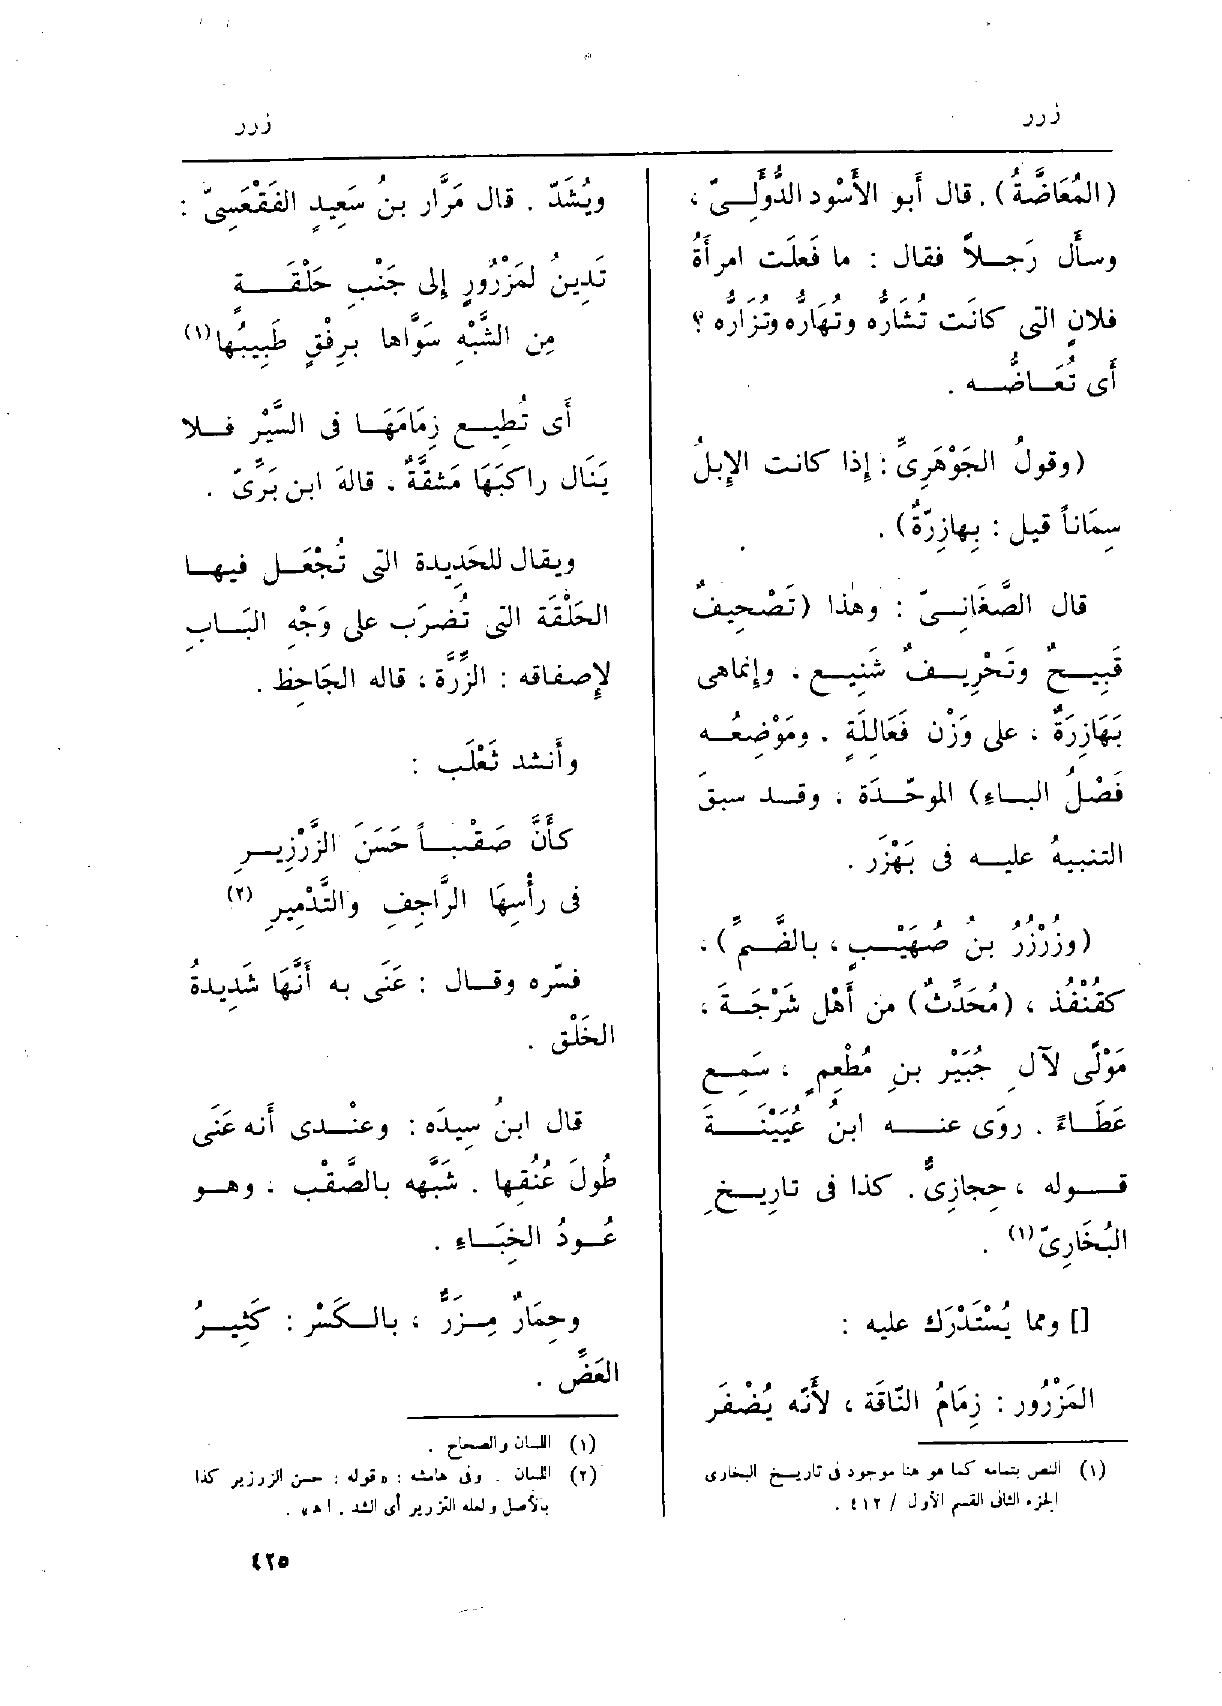 زرر
زرر
(المُعَاضَّةُ) . قال أبو الأَسْود الدُّؤَلِىّ ،
وسأَل رَجلاً فقال : ما فَعلَت امرأَةُ
فلانٍ التى كانَت تُشَارُّه وتُهَارُّه وتُزَارُّه ؟
أَى تُعَاضُّه .
(وقولُ الجَوْهَرِىِّ : إِذا كانت الإِبلُ
سِمَاناً قيل : بِهازِرّةٌ) .
قال الصَّغَانِىّ : وهٰذا (تَصْحيفٌ
قَبِيحٌ وتَحْرِيفٌ شَنِيع ، وإِنماهى
بَهَازِرَةٌ ، على وَزْن فَعَالِلَةٍ . ومَوْضِعُه
فَصْلُ الباء) الموحّدَة ، وقد سبقَ
التنبيهُ عليه فى بَهْزَر .
(وزُرْزُرُ بنُ صُهَيْبٍ ، بالضَّمّ) ،
كقُنْفُذ ، (مُحَدّثٌ) من أَهْل شَرْجَةَ ،
مَوْلًى لآلِ جُبَيْر بنِ مُطْعِمٍ ، سَمِع
عَطَاءً . روَى عنه ابنُ عُيَيْنَةَ
قوله ، حِجازِىٌّ . كذا فى تارِيخِ
البُخَارِىّ (١) .
[] ومما يُسْتَدْرَك عليه :
المَزْرُور : زِمَامُ النَّاقَة ، لأَنّه يُضْفَر
(١) النص بتمامه كما هو هنا موجود فى تاريخ البخارى
الجزء الثانى القسم الأول / ٤١٢ .
ويُشَدّ . قال مَرَّار بنُ سَعِيدٍ الفَقْعَسِىّ :
تَدِينُ لمَزْرُورٍ إِلى جَنْبِ حَلْقَةٍ
مِن الشَّبْهِ سَوَّاها برِفْقٍ طَبِيبُها (١)
أَى تُطِيع زِمَامَهَا فى السَّيْرِ فلا
يَنَال راكبَهَا مَشقَّةٌ ، قالهَ ابن بَرِّىّ .
ويقال للحَدِيدة التى تُجْعَل فيها
الحَلْقَة التى تُضرَب على وَجْهِ البَابِ
لإِصفاقه : الزِّرَّة ، قاله الجَاحِظ .
وأَنشد ثَعْلَب :
كأَنَّ صَقْباً حَسَنَ الزَّرْزِيرِ
فى رأْسِهَا الرَّاجِفِ والتَّدْمِيرِ (٢)
فسّره وقال : عَنَى به أَنَّهَا شَدِيدةُ
الخَلْق .
قال ابنُ سِيدَه : وعنْدى أَنه عَنَى
طُولَ عُنُقها . شَبَّهه بالصَّقْب ، وهو
عُودُ الخِبَاء .
وحِمَارٌ مِزَرٌّ ، بالكَسْر : كَثِيرُ
العَضِّ .
(١) اللسان والصحاح .
(٢) اللسان . وفى هامشه : « قوله : حسن الزرزير كذا
بالأصل ولعله التزرير أى الشد . اه» .
٤٢٥